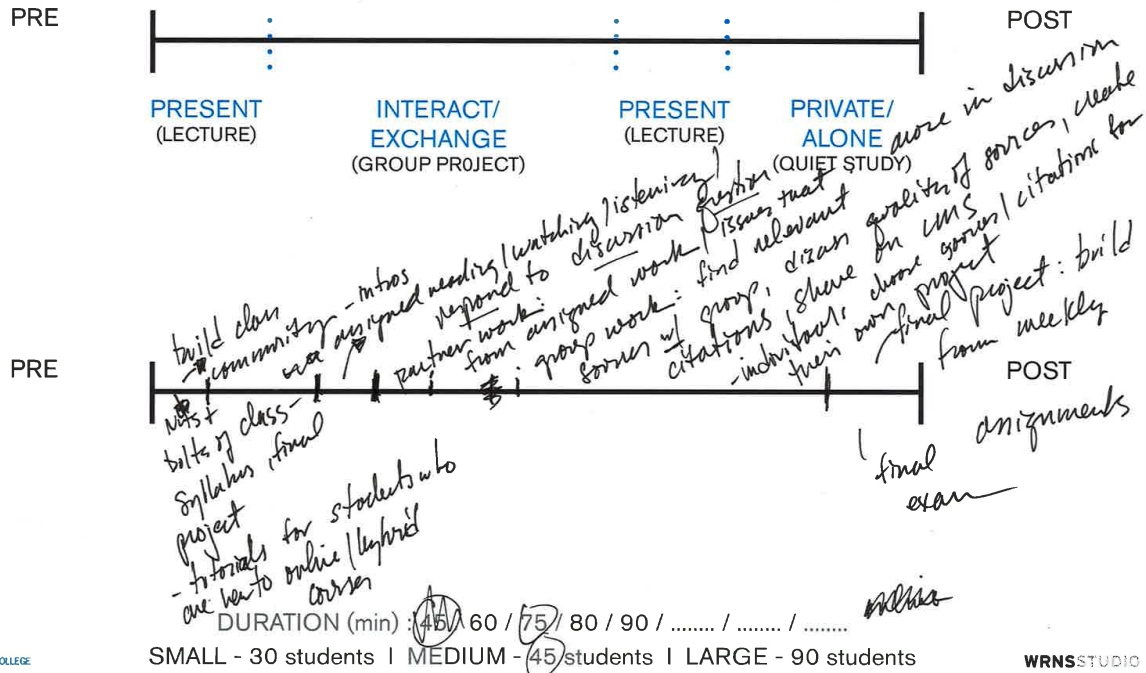 PRE
POST
PRESENT
(LECTURE)
INTERACT/
EXCHANGE
(GROUP PROJECT)
PRESENT
(LECTURE)
PRIVATE/
ALONE
(QUIET STUDY)
PRE
POST
build class
community - intros
assigned reading / watching / listening /
respond to discussion question
partner work:
from assigned work / issues that
arose in discussion
group work: find relevant
sources w/ group, discuss quality of sources, create
citations, share on LMS
- individuals choose sources / citations for
their own project
final project: build
from weekly
assignments
final
exam
Nuts +
bolts of class -
syllabus, final
project
- tutorials for students who
are new to online / hybrid
courses
DURATION (min) : 45 / 60 / 75 / 80 / 90 / ........ / ........ / ........
SMALL - 30 students I MEDIUM - 45 students I LARGE - 90 students
OLLEGE
WRNSSTUDIO